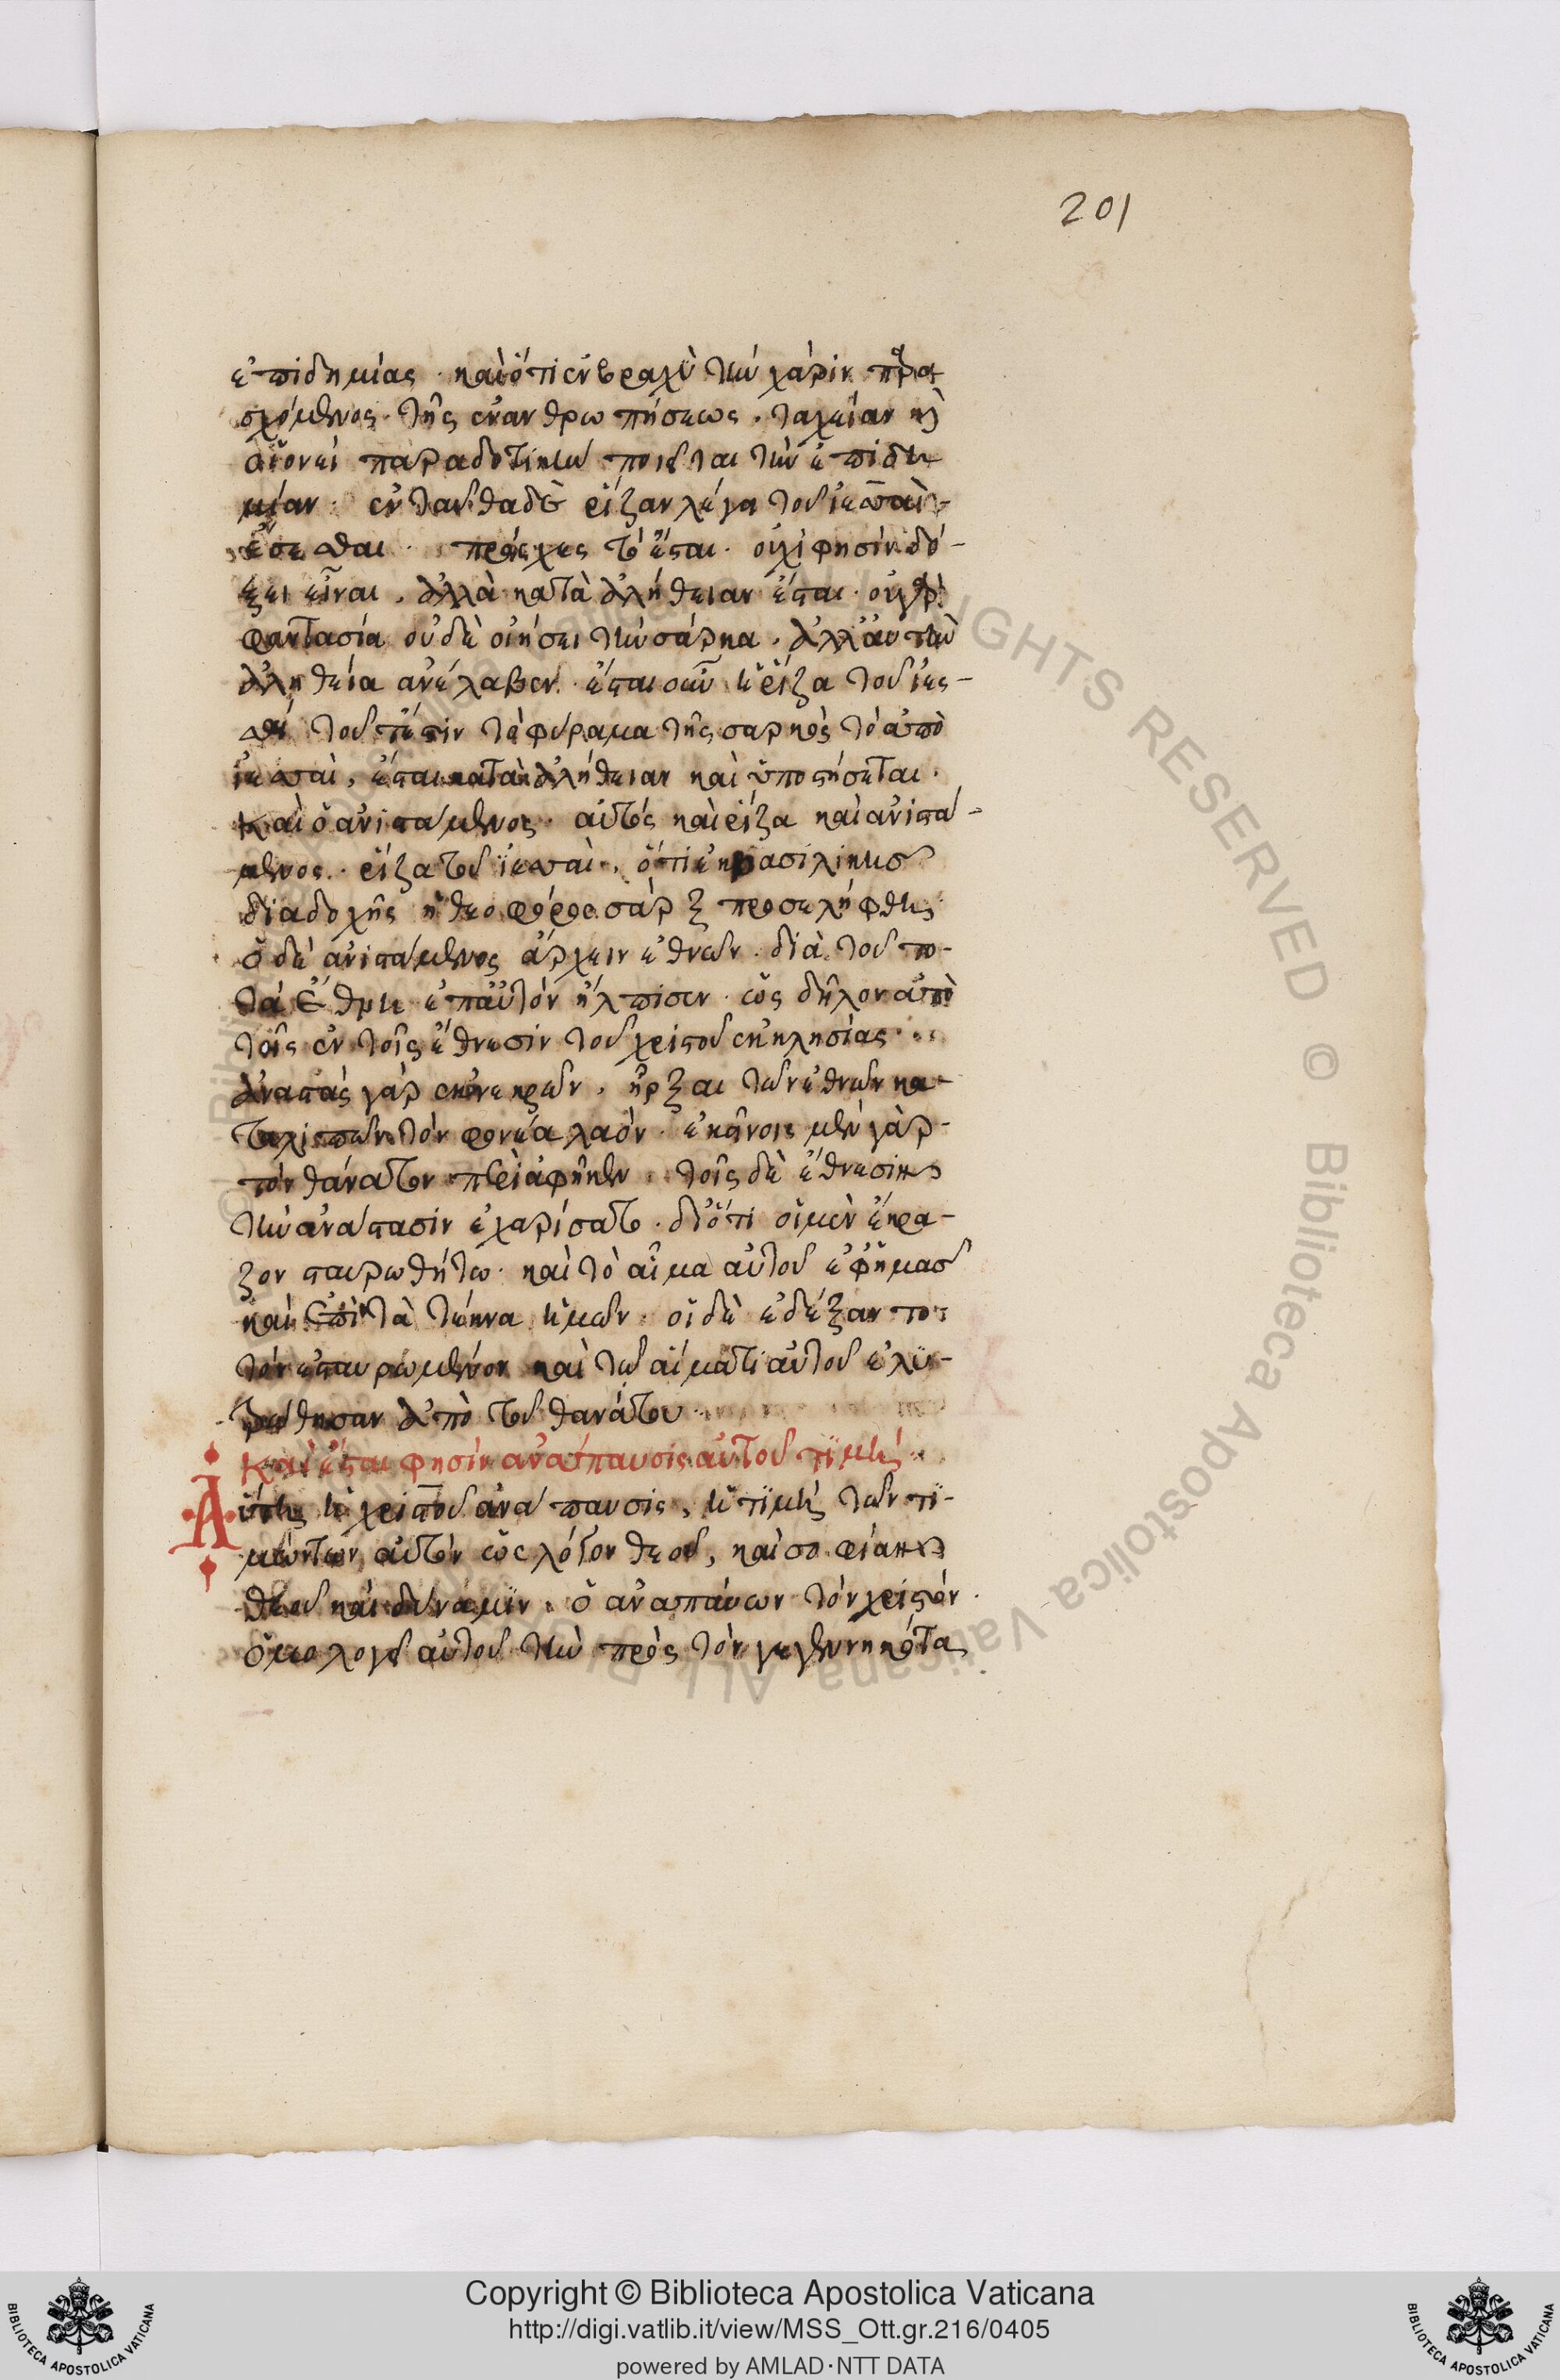 201
ἐπιδημίας · καὶ ὅτι ἐν βραχὺ τὴν χάριν παρα
σχόμενος · τῆς ἐνανθρωπήσεως · ταχεῖαν καὶ
οἱονεὶ παραδοτικὴν ποιεῖται τὴν ἐπιδη
μίαν · ἐνταῦθα δὲ ῥίζαν λέγει τοῦ ἰεσσαὶ -
ἔσεσθαι · πρόσχες τὸ ἔσται · οὐχί φησιν δό -
ξει εἶναι , ἀλλὰ κατὰ ἀλήθειαν ἔσται · οὐ γὰρ
φαντασία οὐδὲ οἰήσει τὴν σάρκα , ἀλλ' αὐτῇ
ἀληθεία ἀνέλαβεν · ἔσται οὖν ἡ ῥίζα τοῦ ἰες -
σαί τουτέστιν τὸ φύραμα τῆς σαρκὸς τὸ ἀπὸ
ἰεσσαὶ , ἔσται κατὰ ἀλήθειαν καὶ ὑποστήσεται ·
καὶ ὁ ἀνιστάμενος · αὐτός καὶ ῥίζα καὶ ἀνιστά -
μενος · ῥίζα τοῦ ἰεσσαὶ , ὅτι ἐκ βασιλικῆς
διαδοχῆς ἡ θεοφόρος σάρξ προσελήφθη ,
ὁ δὲ ἀνιστάμενος ἄρχειν ἐθνῶν · διὰ τοῦτο -
τὰ ἔθνη ἐπ' αὐτὸν ἤλπισεν · ὡς δῆλον ἀπὸ
τοῖς ἐν τοῖς ἔθνεσιν τοῦ χριστοῦ ἐκκλησίας ·
ἀναστάς γάρ ἐκ νεκρῶν , ἦρξαι τῶν ἐθνῶν κα -
ταλιπὼν τὸν φονέα λαόν · ἐκεῖνοις μὲν γὰρ -
τὸν θάνατον περιαφῆκεν · τοῖς δὲ ἔθνεσιν
τὴν ανάστασιν ἐχαρίσατο · διότι οἱ μὲν ἔκρα -
ζον σταυρωθήτω · καὶ τὸ αἷμα αὐτοῦ ἐφ' ἡμᾶς
καὶ ἐπὶ τὰ τέκνα ἡμῶν · οἱ δὲ ἐδέξαντο
τὸν ἐσταυρωμένον καὶ τῷ αἵματι αὐτοῦ ἐλυ -
τρώθησαν ἀπὸ τοῦ θανάτου
καὶ ἔσται φησὶν ἀνάπαυσις αὐτοῦ τιμή
Αὕτη ἡ χριστοῦ ἀνάπαυσις , ἡ τιμή τῶν τι -
μώντων αὐτόν ὡς λόγον θεοῦ , καὶ σοφίαν
θεοῦ καὶ δύναμιν · ὁ ἀναπαύων τὸν χριστόν ·
ὁμολογεῖ αὐτοῦ τὴν πρὸς τὸν γεγεννηκότα
Copyright © Biblioteca Apostolica Vaticana
http://digi.vatlib.it/view/MSS_Ott.gr.216/0405
powered by AMLAD·NTT DATA